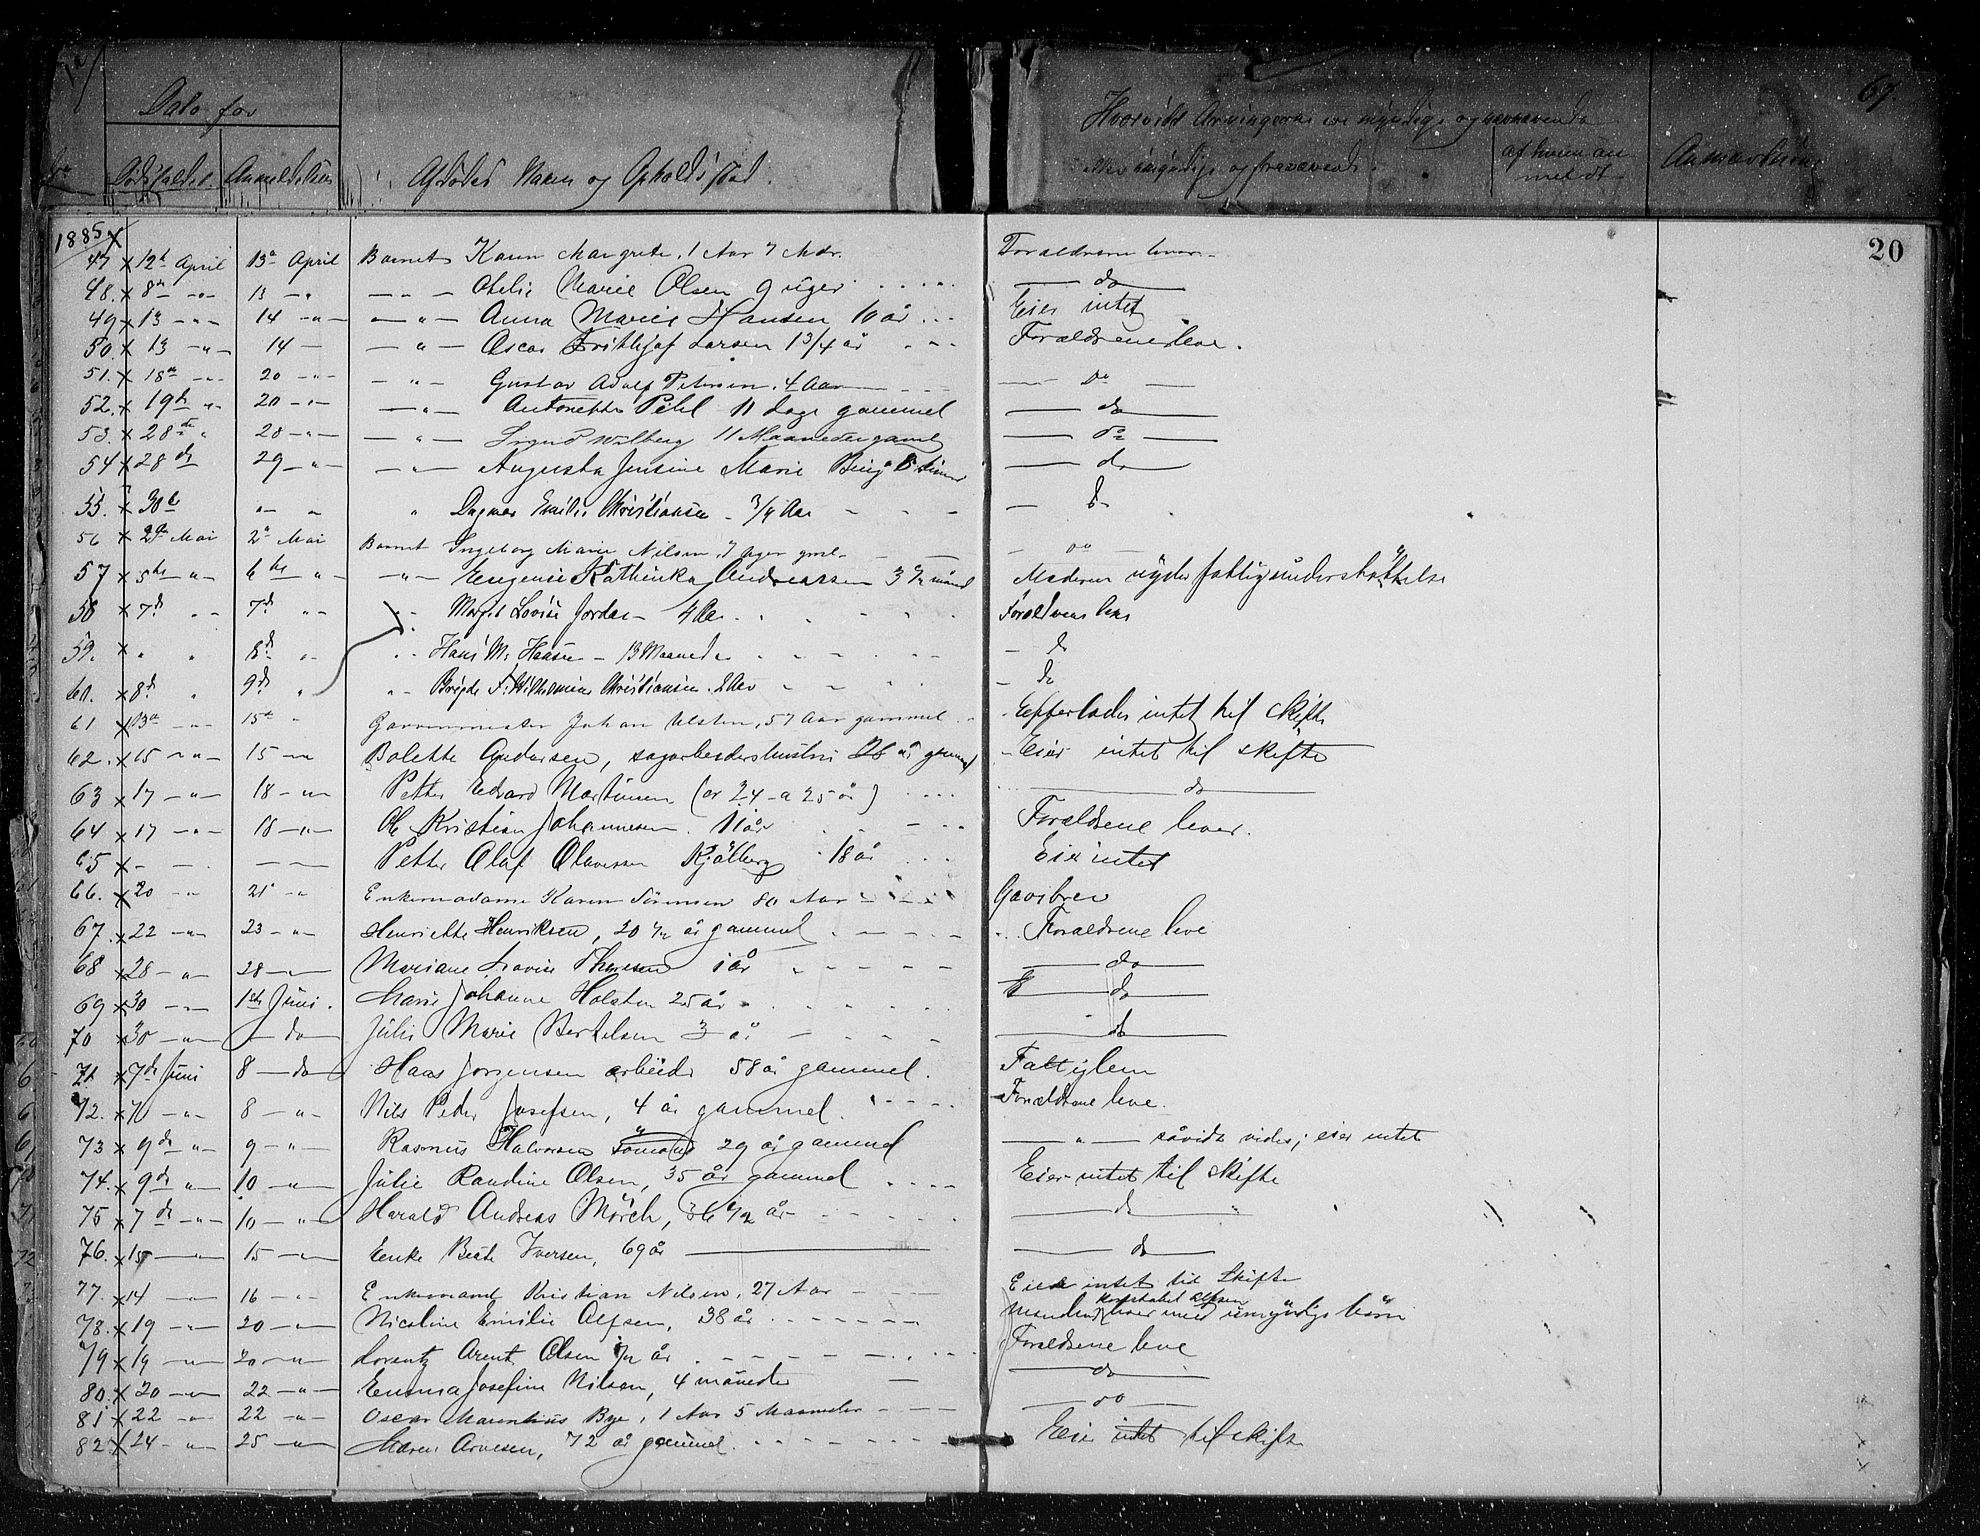 Dato for
Dødsfaldet Anmeldelsen Afdødes Navn og Opholdssted. Hvorvidt Arvingerne ere myndige og nærværende
eller umyndige og fraværende. af hvem an-
meldt Anmærkning
69.
20
1885
47 x 12te April 13de April Barnet Karen Margrete, 1 Aar 7 Mdr. Forældrene lever
48. x 8de — " — 13 — " — " — Otelie Marie Olsen 9 uger do
49 x 13 — " — 14 — " — — " — Anna Marie Hansen 10 år Eier intet
50. x 13 — " — 14 — — " — Oscar Frithjof Larsen 1 3/4 år Forældrene leve.
51. x 18de — " — 20 — " — — " — Gustav Adolf Petersen. 4 Aar Do
52. x 19de " — 20 — " — — " — Antonette Pihl 11 dage gammel do
53. x 28de " 28 — " — — " — Sigurd Wilberg 11 Maaneder gaml do
54 x 28de 29 — " — — " — Augusta Jensine Marie 6 timer do
55. x 30te " " " Dagmar Emilie Christiansen - 3/4 Aar do
56 x 2den Mai 2den Mai Barnet Ingeborg Marie Nilsen, 7 uger gml. do
57 x 5te — " — 6te — " — " — Eugenie Kathinka Andreassen 3 1/2 månd Moderen nyder fattigunderstøttelse
58 x 7de " " 7de " " " Margit Lovise Jordan - 4 Aar Forældrene leve
59. x " " 8de " " Hans M. Hansen - 13 Maaneder do
60. x 8de " 9de " " Brigde F. Wilhelmine Christiansen. 2 Aar do
61 x 13de — " — 15de " Garvermester Johan Ulsten, 57 Aar gammel Efterlader intet til skifte
62. x 15 — " — 15 — " — Bolette Andersen, sagarbeiderhustru 26 år gammel Eier intet til skifte
63 x 17 — " — 18 — " — Petter Edvard Martinsen (ca 24 a 25 år) do
64 x 17 — " — 18 — " — Ole Kristian Johannesen. 11 år Forældrene lever.
65 x — — — " — Petter Olaf Olavessen Kjølberg 18 år Eier intet
66. x 20 — " — 21 — " Enkemadame Karen Sørensen 80 Aar Gavebrev
67. x 22 — " — 23 — " — Henriette Henriksen, 20 1/2 år gammel Forældrene leve
68 x 28 — " — 28 — " — Mariane Lovise Thoresen 1 år do
69 x 30 — " — 1ste Juni. Marie Johanne Holsten 25 år do
70 x 30 — " — — do Julie Marie Bertelsen 3 år do
71 x 7de Juni 8 — do Hans Jørgensen arbeider 58 år gammel. Fattiglem
72. x 7 — " — 8 — " — Nils Peder Josefsen, 4 år gammel. Forældrene leve.
73 x 9de " — 9 — " — Rasmus Halvorsen sømand 29 år gammel — " — såvidt vides; eier intet
74. x 9de " — 10 — " — Julie Randine Olsen, 35 år gammel Eier intet til skifte
75 x 7de — " — 10 — " Harald Andreas Mørch, 36 1/2 år do
76. x 15 — " 15 — " — Enke Beate Iversen, 69 år do
77. x 14 — " — 16 — " Enkemand Kristian Nilsen, 27 Aar Eier intet til Skifte
78. x 19 — " — 20 — " — Nicoline Emilie Alfsen, 38 år Manden konstabel Alfsen lever med umyndige børn
79 x 19 — " — 20 — " — Lorentz Arent Olsen 1/2 år Forældrene leve
80. x 20 — " — 22 — " — Emma Josefine Nilsen, 4 måneder do
81 x 22 — " — 22 — " — Oscar Marentius Bye, 1 Aar 5 Maaneder do
82 x 24 — " — 25 — " — Maren Arvesen, 72 år gammel. Eier intet til skifte